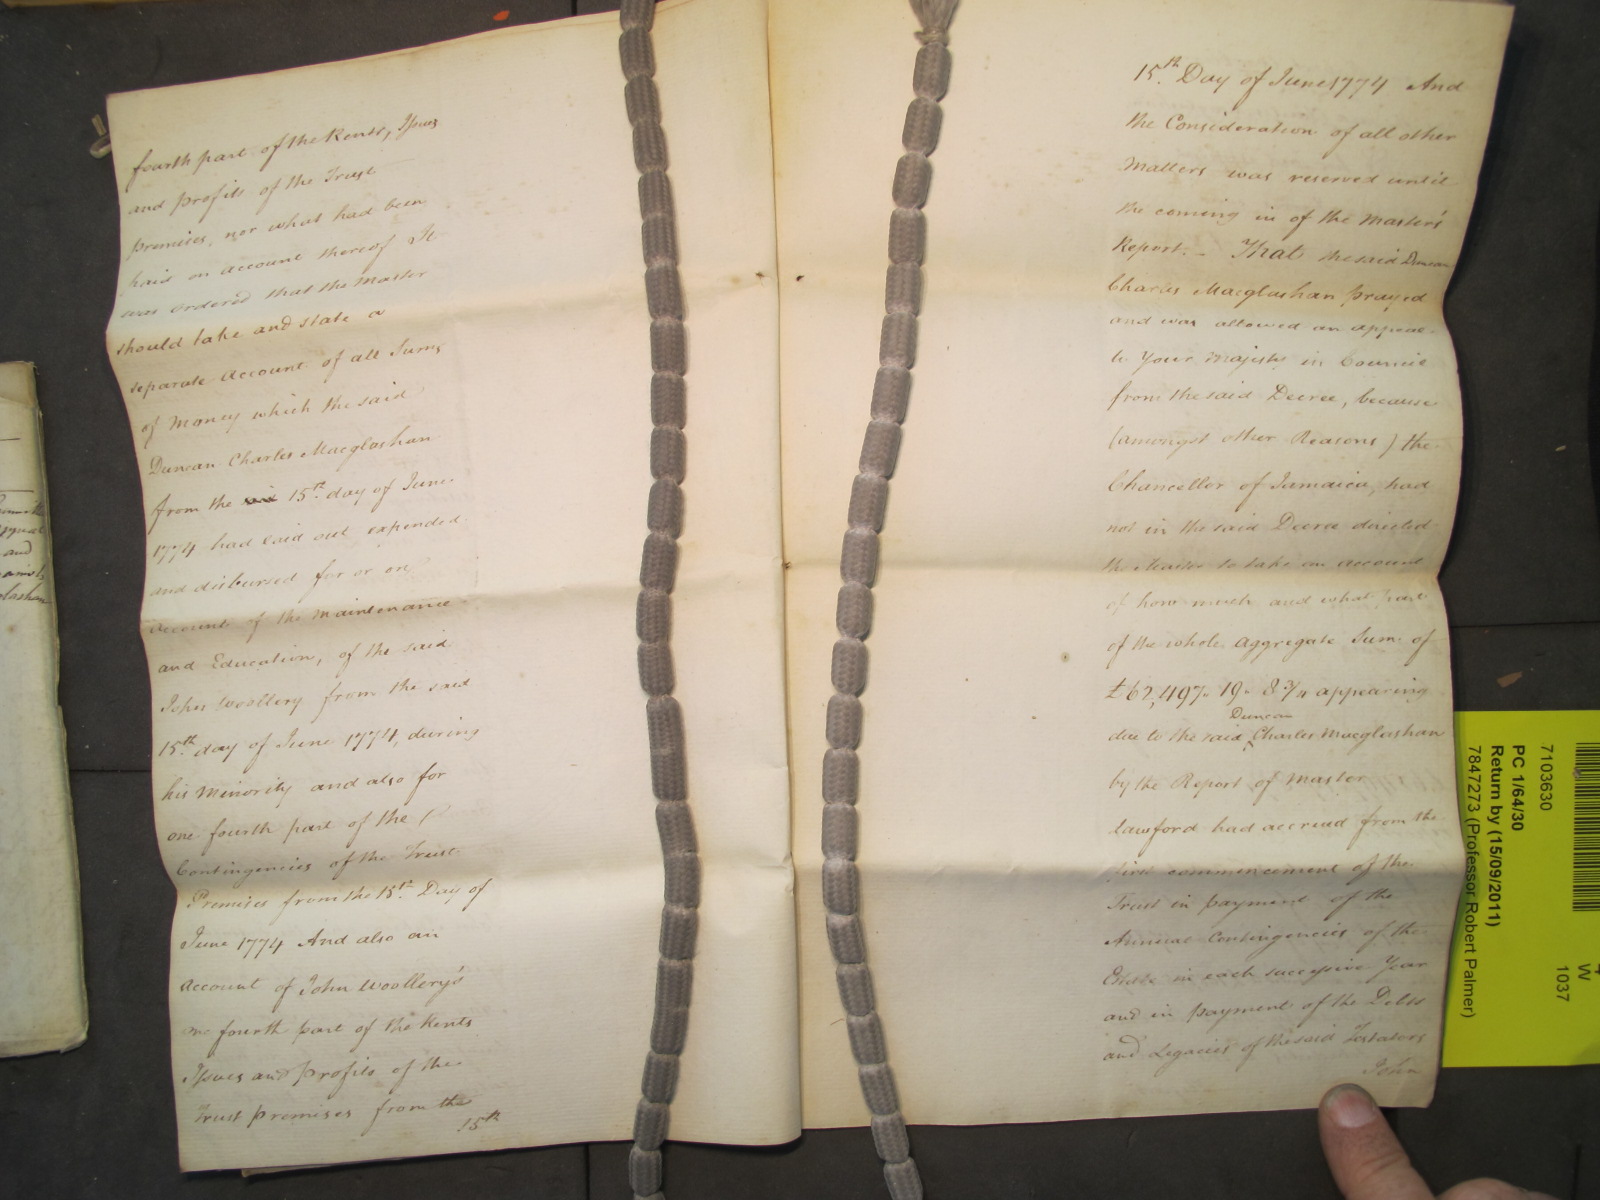 fourth part of the Rents, Issues
and profits of the Trust
premises, nor what had been
paid on account thereof It
was ordered that the Master
should take and state a
separate Account of all Sums
of Money which the said
Duncan Charles Macglashan
from the 15th day of June
1774 had laid out expended
and disbursed for or on
account of the maintenance
and Education, of the said
John Woollery from the said
15th day of June 1774, during
his Minority and also for
one fourth part of the
Contingencies of the Trust
Premises from the 15th Day of
June 1774 And also an
Account of John Woollery's
one fourth part of the Rents
Issues and profits of the
Trust premises from the
15th
15th Day of June 1774 And
the Consideration of all other
Matters was reserved until
the coming in of the Master's
Report. – That the said Duncan
Charles Macglashan prayed
and was allowed an appeal
to Your Majesty in Council
from the said Decree, because
(amongst other Reasons) the
Chancellor of Jamaica, had
not in the said Decree directed
the Master to take an account
of how much and what part
of the whole Aggregate Sum of
£62,497. 19. 8 3/4 appearing
due to the said Duncan Charles Macglashan
by the Report of Master
Lawford had accrued from the
first commencement of the
Trust in payment of the
Annual Contingencies of the
Estate in each successive Year
and in payment of the Debts
and Legacies of the said Testators
John
7103630
PC 1/64/30
Return by (15/09/2011)
7847273 (Professor Robert Palmer)
W
1037